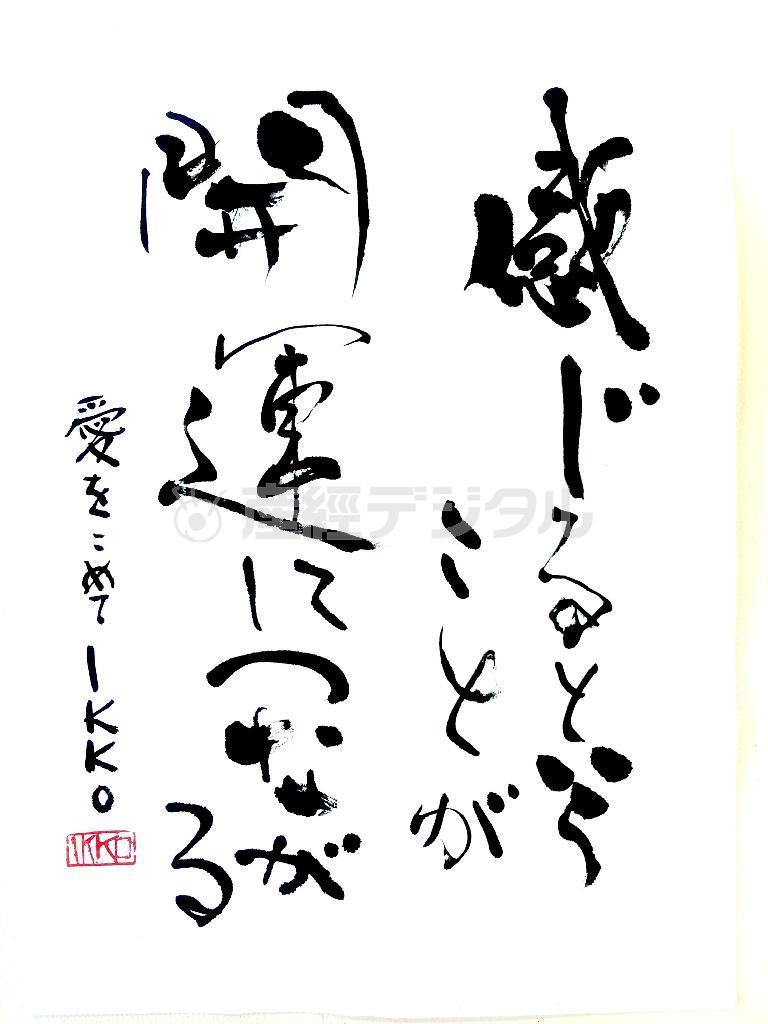 感じるという
ことが
開運につながる
愛をこめて IKKO
IKKO
産経デジタル